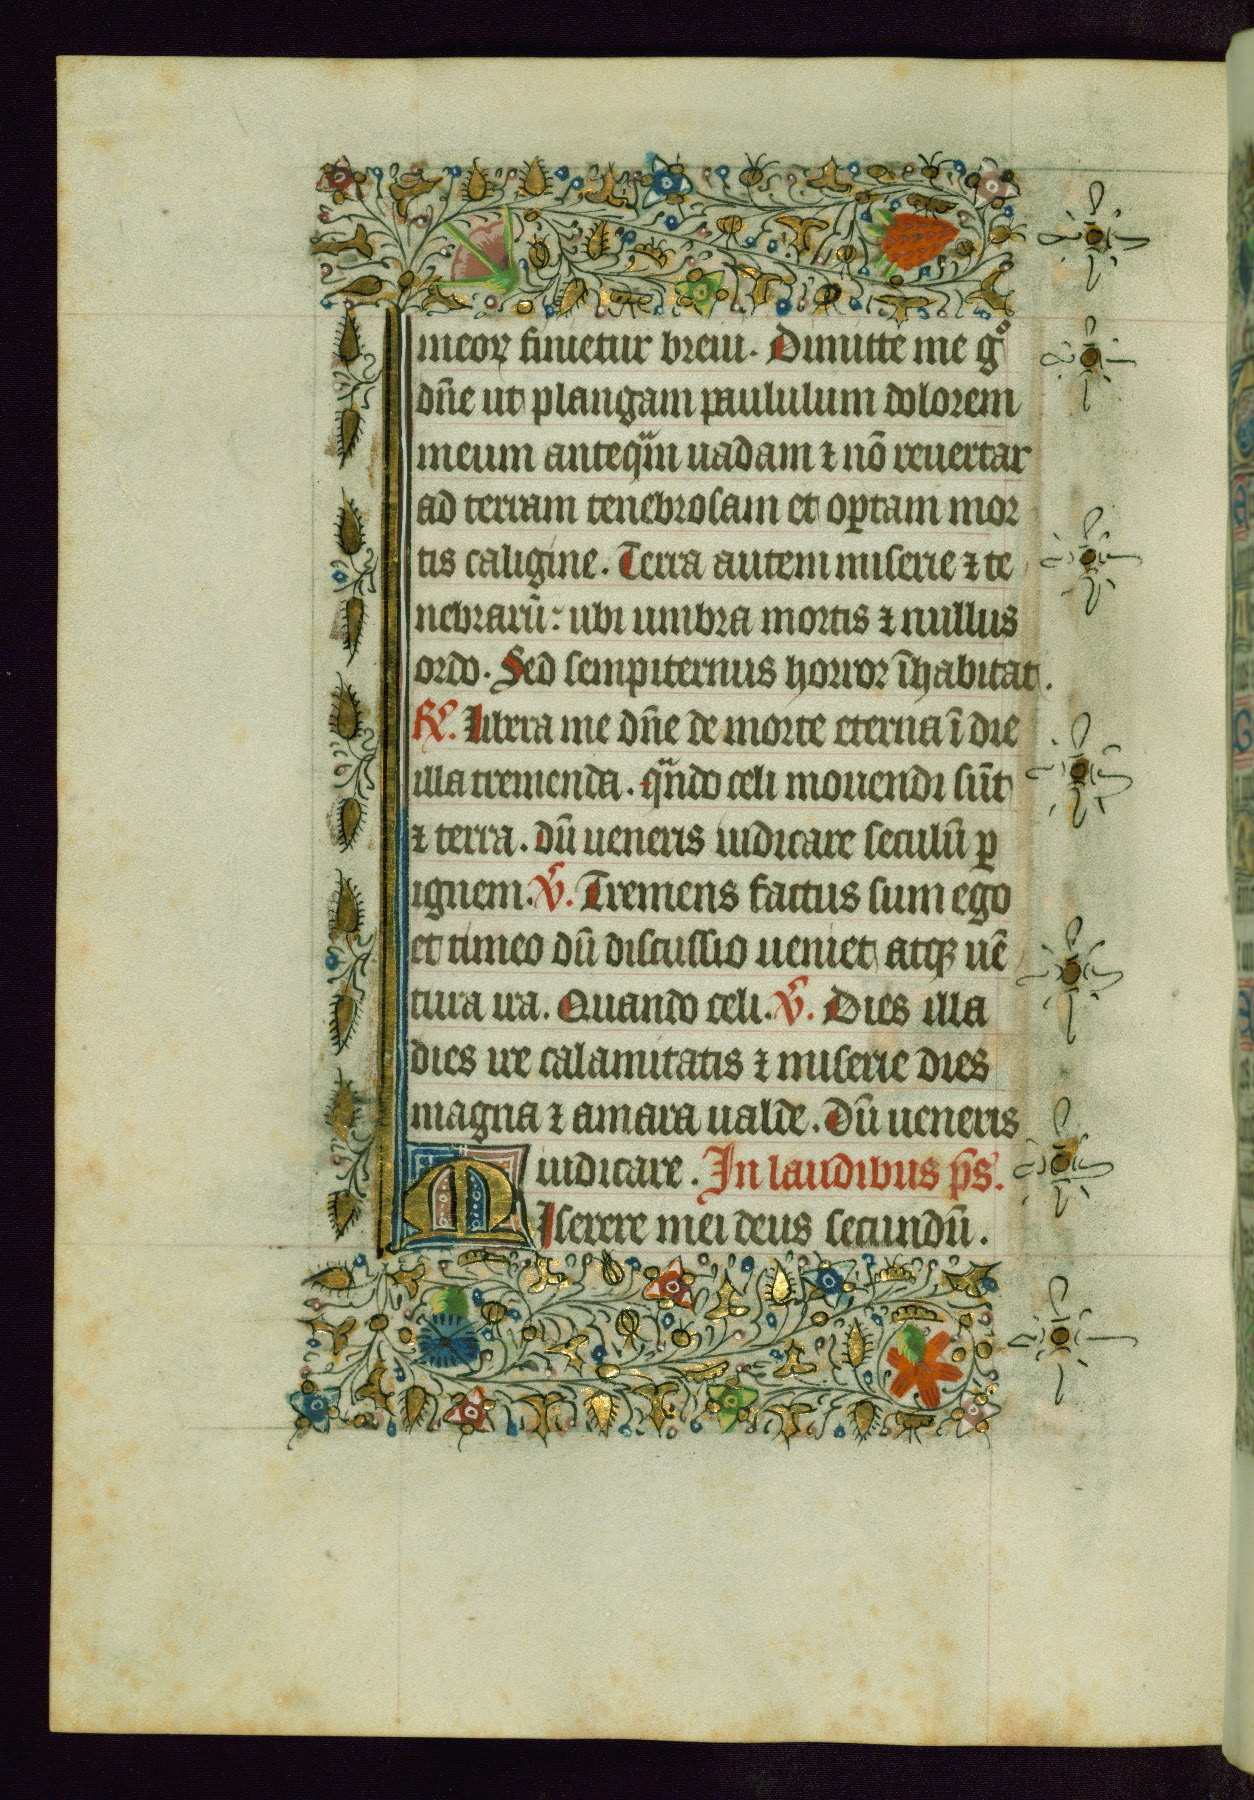 meoꝝ finietur breui. Dimitte me gͦ
dn̄e ut plangam paululum dolorem
meum anteqᷓm uadam ⁊ nō reuertar
ad terram tenebrosam et op̲tam mor
tis caligine. Terra autem miserie ⁊ te
nebrarū: ubi umbra mortis ⁊ nullus
ordo. Sed sempiternus horror īhabitat.
℟. Libera me dn̄e de morte eterna ī die
illa tremenda. qᷓndo celi mouendi sūt
⁊ terra. dū ueneris iudicare seculū ꝑ
ignem. ℣. Tremens factus sum ego
et timeo dū discussio ueniet atqꝫ uē
tura ira. Quando celi. ℣. Dies illa
dies ire calamitatis ⁊ miserie dies
magna ⁊ amara ualde. Dū ueneris
iudicare. In laudibus ps̄.
MIserere mei deus secundū.